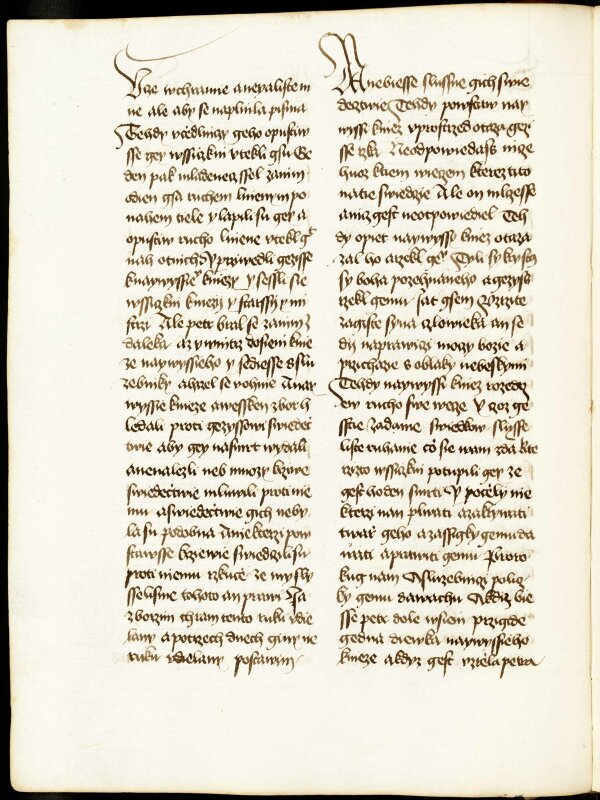 Uze wchramie anepalistem
ne ale aby se naplnila pisma
Tehdy vcedlnicy geho opustiw
sse gey wssiczkni vtekli gsu Ge
den pak mladenecz ssel zanim
odien gsa ruchem lnienem po
nahem tiele y lapili su gey a
opustiw rucho lniene vtekl
nah otnich Y prziwedli gezisse
knaywyssie kniezy y sessli sie
wssiczkni kniezy y starssy y mi
strzi Ale petr bral se zanim z
daleka az ywnitrz dosieni knie
ze naywyssieho y sediesse sslu
zebniky ahrzel se vohnie Anay
wyssie knieze awessken zbor h
ledali proti gezyssowi swiedec
twie aby gey nasmrt wydali
anenalezli neb mnozy krziwe
swiedectwie mluwili proti nie
mu aswiedectwie gich neby
la su podobna Aniekterzi pow
stawsse krziwie swiedczili su
proti niemu rzkuce ze my sly
sseli sme tohoto an prawi Ja
zborzim chram tento ruku vdie
lany apotrzech dnech giny ne
ruku vdielany postawim
Anebiesse slussne gich swie
dectwie Tehdy powstaw nay
wyss kniez vprostrzed otaza gezi
sse rzka Neodpowiedass nicze
knim wieczem kterez tito
natie swiedcze Ale on mlczesse
anicz gest neotpowiediel Teh
dy opiet naywyssy kniez otaza
zal ho arzekl gemu Tyli sy krystus
sy boha pozehnaneho agezyss
rzekl gemu Jat gsem Vzrzite
zagiste syna czlowieka an se
dii naprawici moczy bozie a
przichazie s oblaky nebeskymi
Tehdy naywyssi kniez rozedrz
ew rucho swe wecze Y czoz ge
sstie zadame swiedkow slysse
liste ruhanie co sie wam zda kte
rzizto wssiczkni potupili gey ze
gest hoden smrti Y poczely nie
kterzi nan plwati azakrywati
twarz geho azassigky gemu da
wati aprawiti gemu Proro
kug nam Asluzebnici policz
ky gemu dawachu Akdiz bie
sse petr dole wsieni przigide
gedna diewka naywyssieho
knieze akdyz gest vziela petra